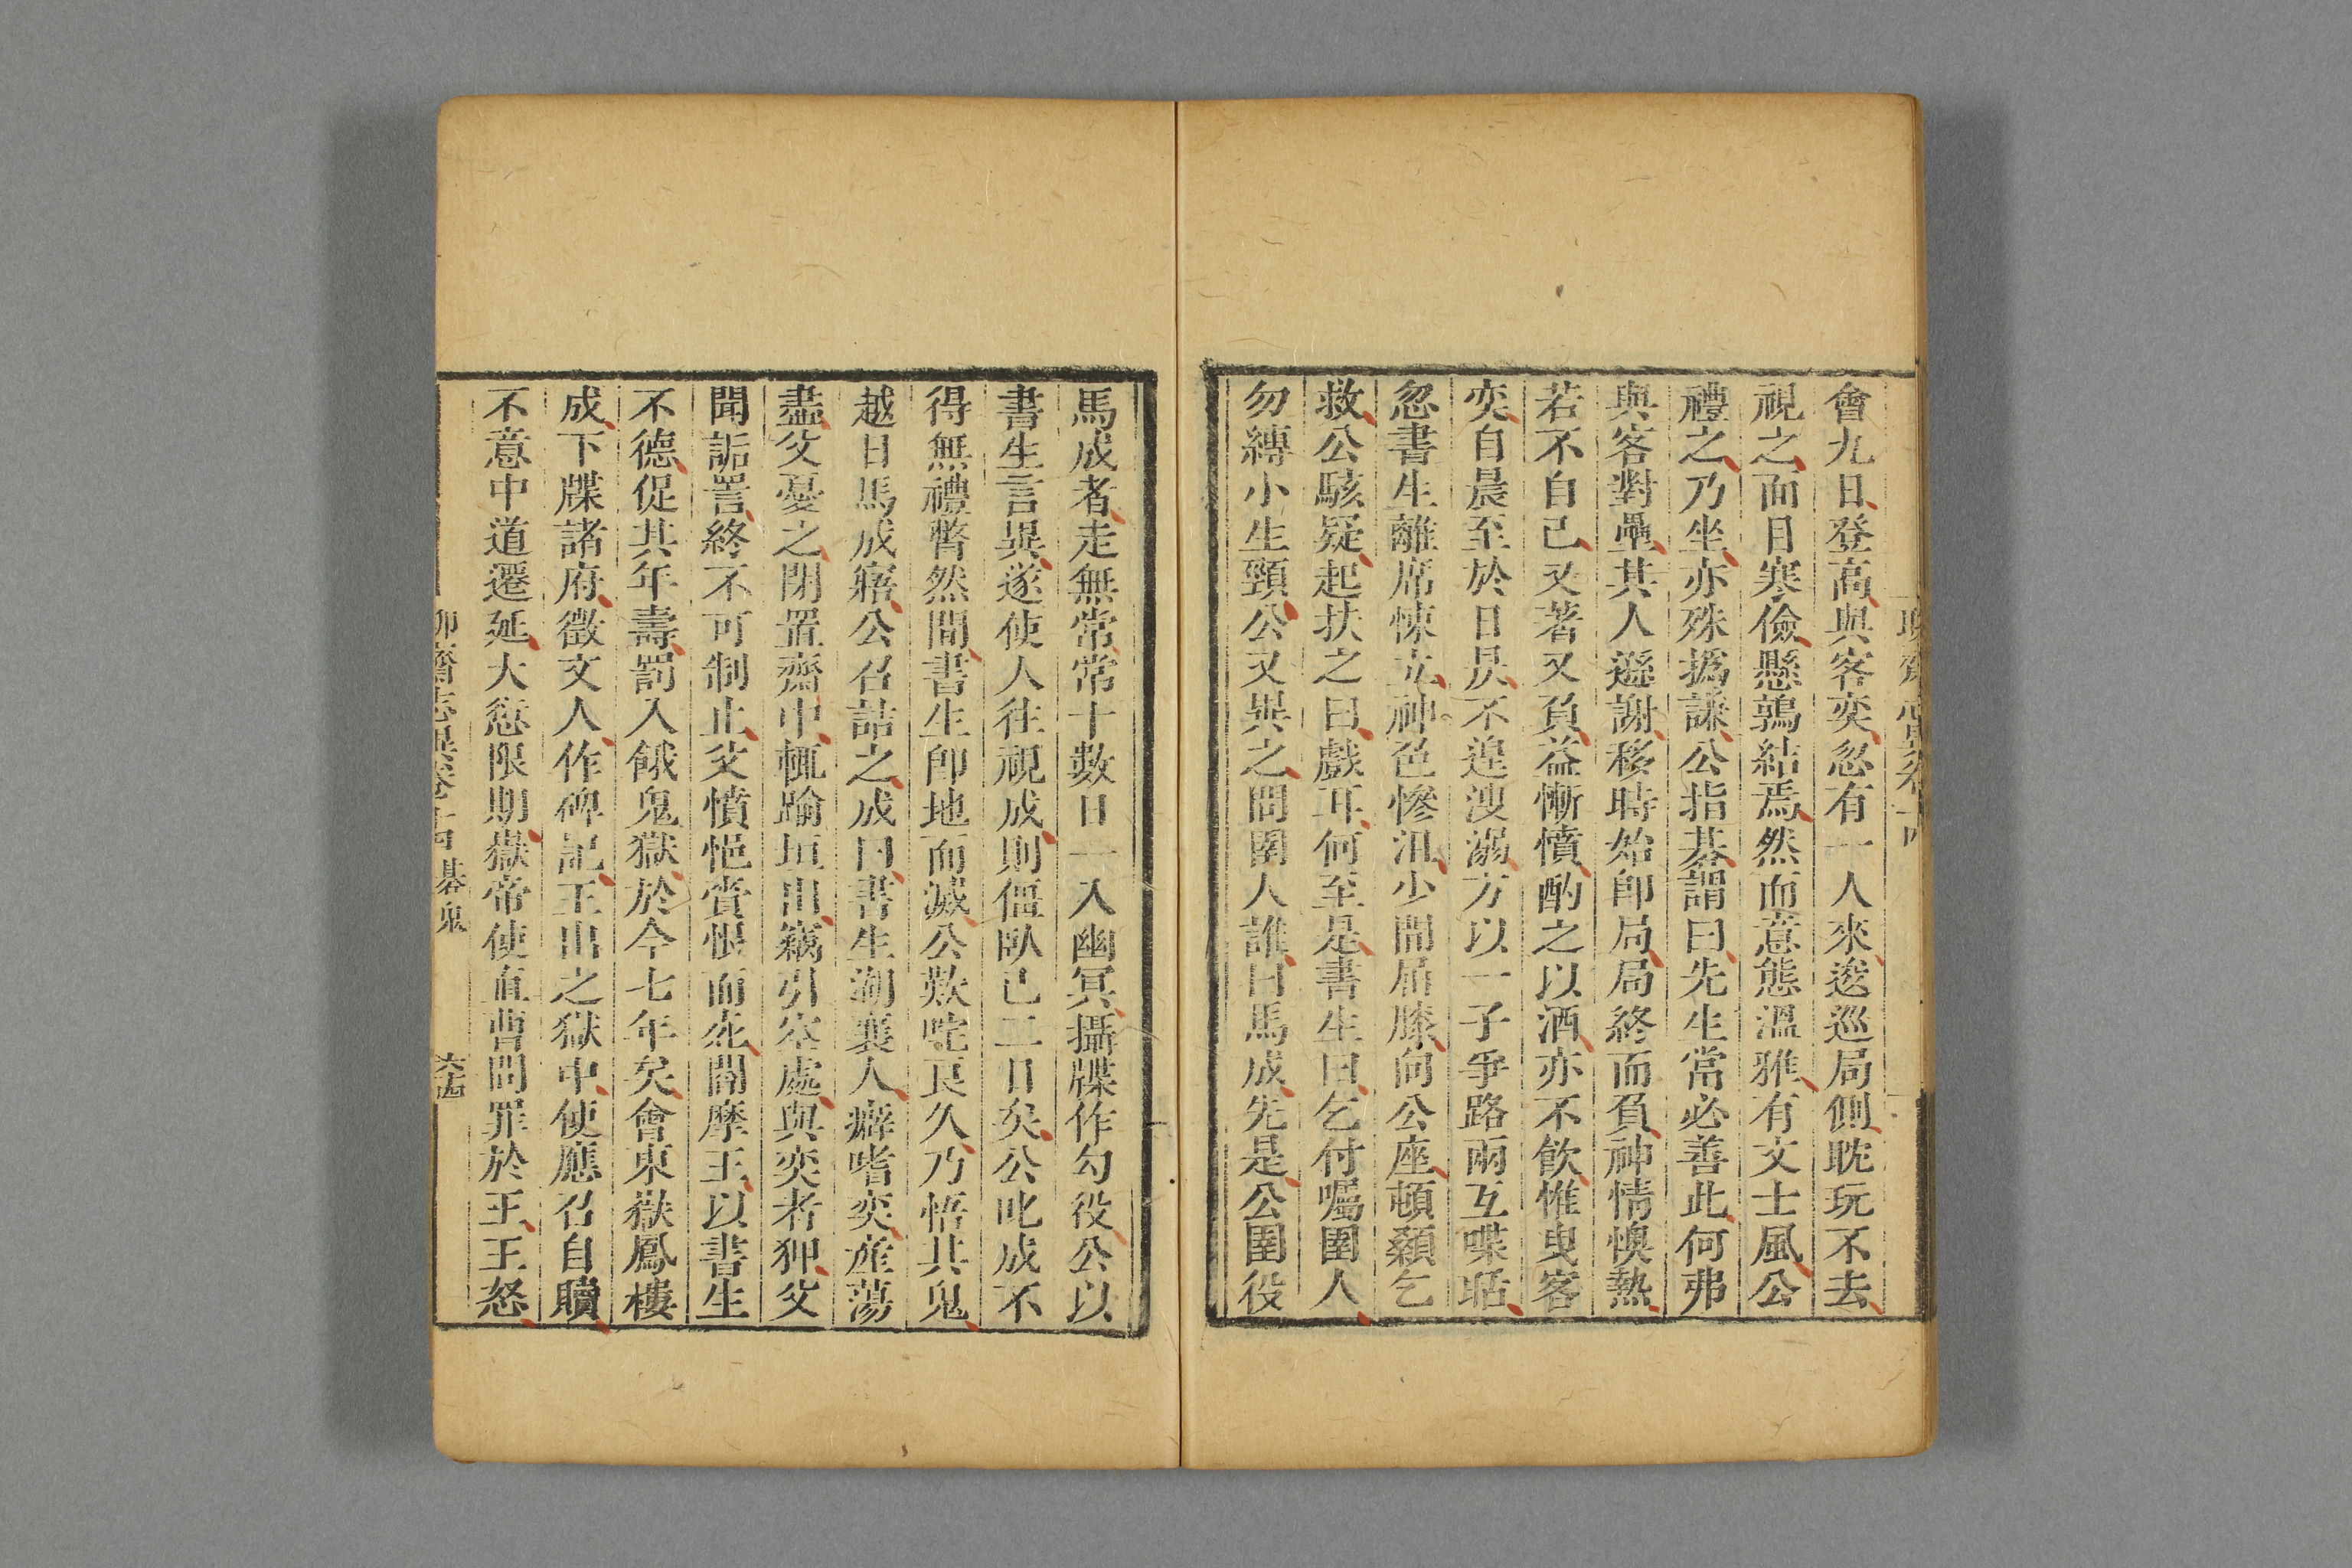 會九日登高與客奕忽有一人來逡巡局側耽玩不去
視之面目寒儉懸鶉結焉然而意態溫雅有文士風公
禮之乃坐亦殊撝謙公指棊謂曰先生當必善此何弗
與客對壘其人遜謝移時始卽局局終而負神情懊熱
若不自已又著又負益慚憤酌之以酒亦不飲惟曳客
奕自晨至於日昃不遑溲溺方以一子爭路兩互喋聒
忽書生離席悚立神色慘沮少間屈膝向公座頓顙乞
救公駭疑起扶之曰戲耳何至是書生曰乞付囑圉人
勿縛小生頸公又異之問圉人誰曰馬成先是公圉役
馬成者走無常常十數日一入幽冥攝牒作勾役公以
書生言異遂使人往視成則僵臥已二日矣公叱成不
得無禮瞥然間書生卽地而滅公歎咤良久乃悟其鬼
越日馬成寤公召詰之成曰書生湖襄人癖嗜奕產蕩
盡父憂之閉置齋中輒踰垣出竊引空處與奕者狎父
聞詬詈終不可制止父憤悒賫恨而死閻摩王以書生
不德促其年壽罰入餓鬼獄於今七年矣會東嶽鳳樓
成下牒諸府徵文人作碑記王出之獄中使應召自贖
不意中道遷延大愆限期嶽帝使直曹問罪於王王怒
聊齋志異卷十四 棊鬼 六十四